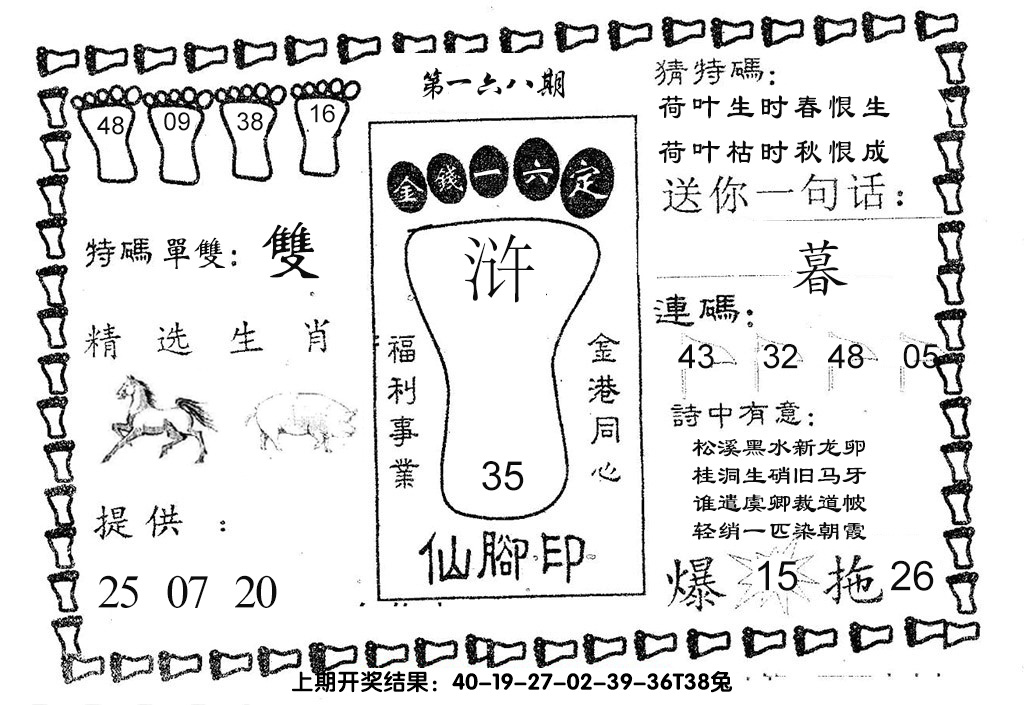 第一六八期
48 09 38 16
特碼單雙：雙
精选生肖
提供：
25 07 20
金錢一六定
浒
福利事業
金港同心
35
仙腳印
猜特碼：
荷叶生时春恨生
荷叶枯时秋恨成
送你一句话：
暮
連碼：
43 32 48 05
詩中有意：
松溪黑水新龙卵
桂洞生硝旧马牙
谁遣虞卿裁道帔
轻绡一匹染朝霞
爆 15 拖 26
上期开奖结果：40-19-27-02-39-36T38兔